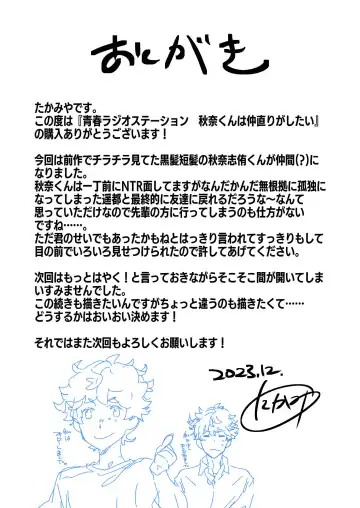 あとがき
たかみやです。
この度は『青春ラジオステーション　秋奈くんは仲直りがしたい』
の購入ありがとうございます！
今回は前作でチラチラ見てた黒髪短髪の秋奈志侑くんが仲間(?)に
なりました。
秋奈くんは一丁前にNTR面してますがなんだかんだ無根拠に孤独に
なってしまった遥都と最終的に友達に戻れるだろうな〜なんて
思っていただけなので先輩の方に行ってしまうのも仕方がない
ですね……。
ただ君のせいでもあったかもねとはっきり言われてすっきりもして
目の前でいろいろ見せつけられたので許してあげてください。
次回はもっとはやく！と言っておきながらそこそこ間が開いてしま
いすみませんでした。
この続きも描きたいんですがちょっと違うのも描きたくて……
どうするかはおいおい決めます！
それではまた次回もよろしくお願いします！
2023.12.
たかみや